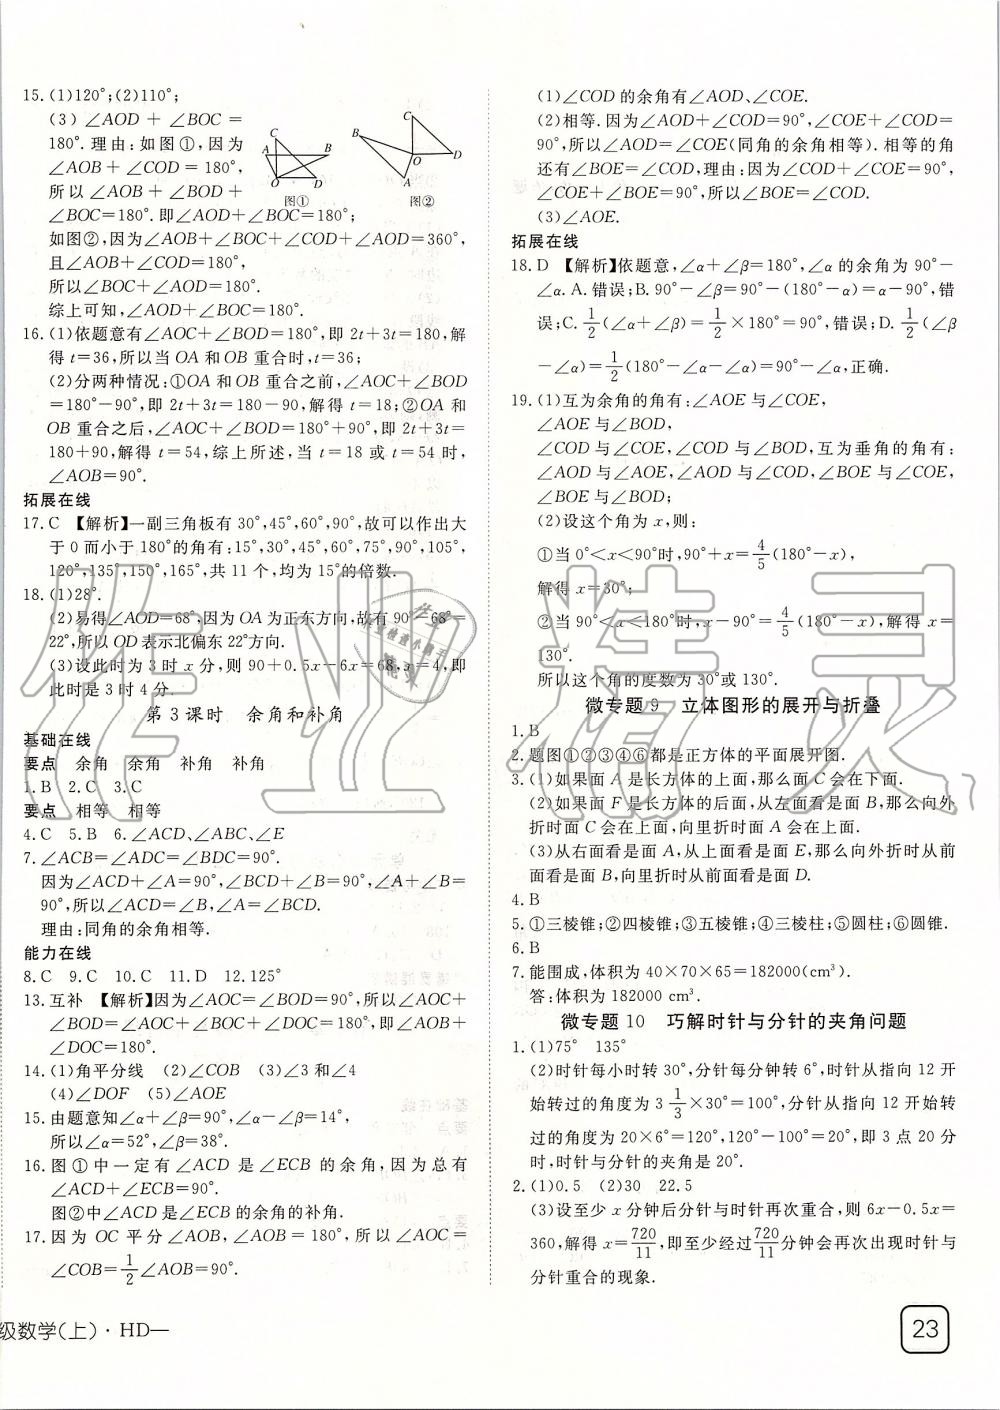 15.(1)120°;(2)110°;
(3)∠AOD+∠BOC=
180°.理由:如图①,因为
∠AOB+∠COD=180°,
所以∠AOB+∠BOD+
∠BOC=180°.即∠AOD+∠BOC=180°;
C
A
B
O
D
图①
C
B
O
D
A
图②
如图②,因为∠AOB+∠BOC+∠COD+∠AOD=360°,
且∠AOB+∠COD=180°,
所以∠BOC+∠AOD=180°.
综上可知,∠AOD+∠BOC=180°.
16.(1)依题意有∠AOC+∠BOD=180°,即2t+3t=180,解
得t=36,所以当OA和OB重合时,t=36;
(2)分两种情况:①OA和OB重合之前,∠AOC+∠BOD
=180°-90°,即2t+3t=180-90,解得t=18;②OA和
OB重合之后,∠AOC+∠BOD=180°+90°,即2t+3t=
180+90,解得t=54,综上所述,当t=18或t=54时,
∠AOB=90°.
拓展在线
17.C 【解析】一副三角板有30°,45°,60°,90°,故可以作出大
于0而小于180°的角有:15°,30°,45°,60°,75°,90°,105°,
120°,135°,150°,165°,共11个,均为15°的倍数.
18.(1)28°.
(2)易得∠AOD=68°,因为OA为正东方向,故有90°-68°=
22°,所以OD表示北偏东22°方向.
(3)设此时为3时x分,则90+0.5x-6x=68,x=4,即
此时是3时4分.
第3课时 余角和补角
基础在线
要点 余角 余角 补角 补角
1.B 2.C 3.C
要点 相等 相等
4.C 5.B 6.∠ACD、∠ABC、∠E
7.∠ACB=∠ADC=∠BDC=90°.
因为∠ACD+∠A=90°,∠B+∠BCD=90°,∠A+∠B=
90°,所以∠ACD=∠B,∠A=∠BCD.
理由:同角的余角相等.
能力在线
8.C 9.C 10.C 11.D 12.125°
13.互补 【解析】因为∠AOC=∠BOD=90°,所以∠AOC+
∠BOD=∠AOC+∠BOC+∠DOC=180°,即∠AOB+
∠DOC=180°.
14.(1)角平分线 (2)∠COB (3)∠3和∠4
(4)∠DOF (5)∠AOE
15.由题意知∠α+∠β=90°,∠α-∠β=14°,
所以∠α=52°,∠β=38°.
16.图①中一定有∠ACD是∠ECB的余角,因为总有
∠ACD+∠ECB=90°.
图②中∠ACD是∠ECB的余角的补角.
17.因为OC平分∠AOB,∠AOB=180°,所以∠AOC=
∠COB=1/2∠AOB=90°.
(1)∠COD的余角有∠AOD、∠COE.
(2)相等.因为∠AOD+∠COD=90°,∠COE+∠COD=
90°,所以∠AOD=∠COE(同角的余角相等).相等的角
还有∠BOE=∠COD,理由:因为∠COD+∠COE=90°,
∠COE+∠BOE=90°,所以∠BOE=∠COD.
(3)∠AOE.
拓展在线
18.D 【解析】依题意,∠α+∠β=180°,∠α的余角为90°-
∠α.A.错误;B.90°-∠β=90°-(180°-α)=α-90°,错
误;C.1/2(∠α+∠β)=1/2×180°=90°,错误;D.1/2(∠β
-∠α)=1/2(180°-∠α-∠α)=90°-∠α,正确.
19.(1)互为余角的角有:∠AOE与∠COE,
∠AOE与∠BOD,
∠COD与∠COE,∠COD与∠BOD,互为垂角的角有:
∠AOD与∠AOE,∠AOD与∠COD,∠BOE与∠COE,
∠BOE与∠BOD;
(2)设这个角为x,则:
①当0°<x<90°时,90°+x=4/5(180°-x),
解得x=30°;
②当90°<x<180°时,x-90°=4/5(180°-x),解得x=
130°.
所以这个角的度数为30°或130°.
微专题9 立体图形的展开与折叠
1.B
2.题图①②③④⑥都是正方体的平面展开图.
3.(1)如果面A是长方体的上面,那么面C会在下面.
(2)如果面F是长方体的后面,从左面看是面B,那么向外
折时面C会在上面,向里折时面A会在上面.
(3)从右面看是面A,从上面看是面E,那么向外折时从前
面看是面B,向里折时从前面看是面D.
4.B
5.①三棱锥;②四棱锥;③五棱锥;④三棱柱;⑤圆柱;⑥圆锥.
6.B
7.能围成,体积为40×70×65=182000(cm³).
答:体积为182000 cm³.
微专题10 巧解时针与分针的夹角问题
1.(1)75° 135°
(2)时针每小时转30°,分针每分钟转6°,时针从指向12开
始转过的角度为3 1/3×30°=100°,分针从指向12开始转
过的角度为20×6°=120°,120°-100°=20°,即3点20分
时,时针与分针的夹角是20°.
2.(1)0.5 (2)30 22.5
(3)设至少x分钟后分针与时针再次重合,则6x-0.5x=
360,解得x=720/11,即至少经过720/11分钟会再次出现时针与
分针重合的现象.
级数学(上)·HD—
23
作业精灵